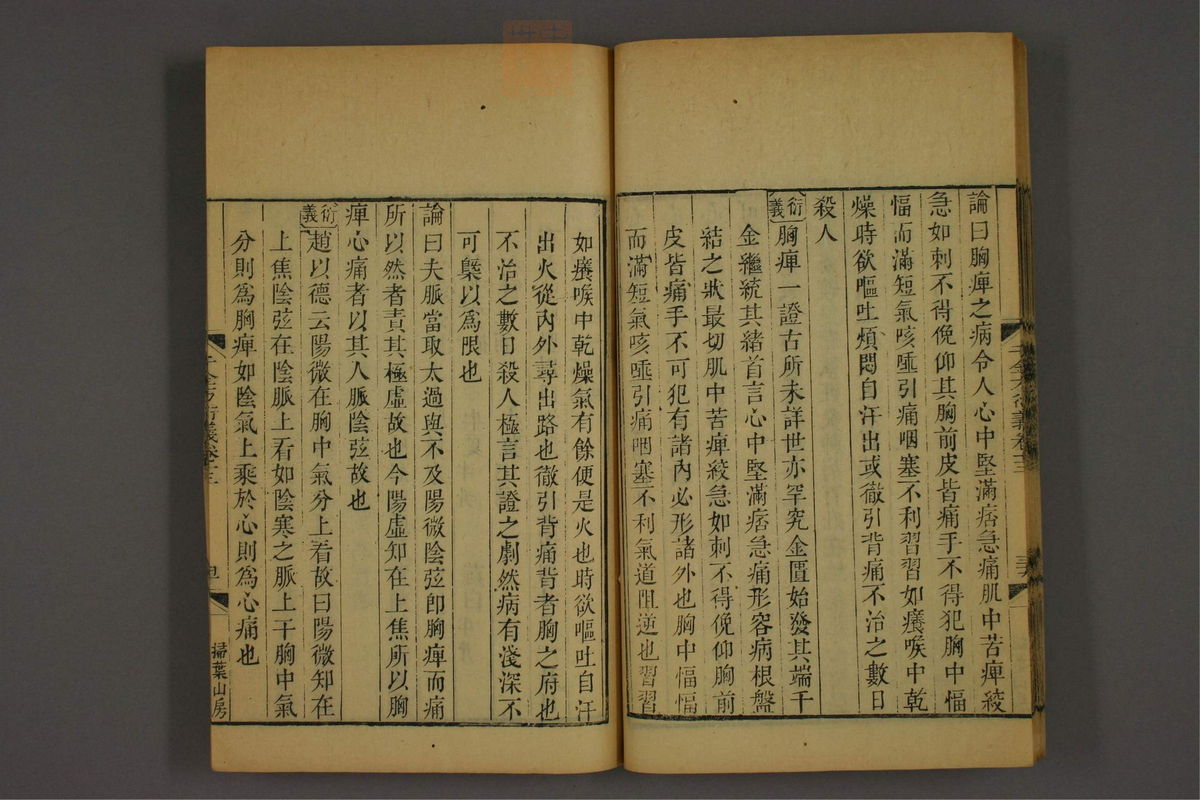 論曰胸痺之病令人心中堅滿痞急痛肌中苦痺絞
急如刺不得俛仰其胸前皮皆痛手不得犯胸中愊
愊而滿短氣咳唾引痛咽塞不利習習如癢喉中乾
燥時欲嘔吐煩悶自汗出或徹引背痛不治之數日
殺人
衍義
胸痺一證古所未詳世亦罕究金匱始發其端千
金繼統其緒首言心中堅滿痞急痛形容病根盤
結之狀最切肌中苦痺絞急如刺不得俛仰胸前
皮皆痛手不可犯有諸內必形諸外也胸中愊愊
而滿短氣咳唾引痛咽塞不利氣道阻逆也習習
如癢喉中乾燥氣有餘便是火也時欲嘔吐自汗
出火從內外尋出路也徹引背痛背者胸之府也
不治之數日殺人極言其證之劇然病有淺深不
可槩以為限也
論曰夫脈當取太過與不及陽微陰弦卽胸痺而痛
所以然者責其極虛故也今陽虛知在上焦所以胸
痺心痛者以其人脈陰弦故也
衍義
趙以德云陽微在胸中氣分上看故曰陽微知在
上焦陰弦在陰脈上看如陰寒之脈上干胸中氣
分則爲胸痺如陰氣上乘於心則爲心痛也
千金方衍義卷十三
掃葉山房